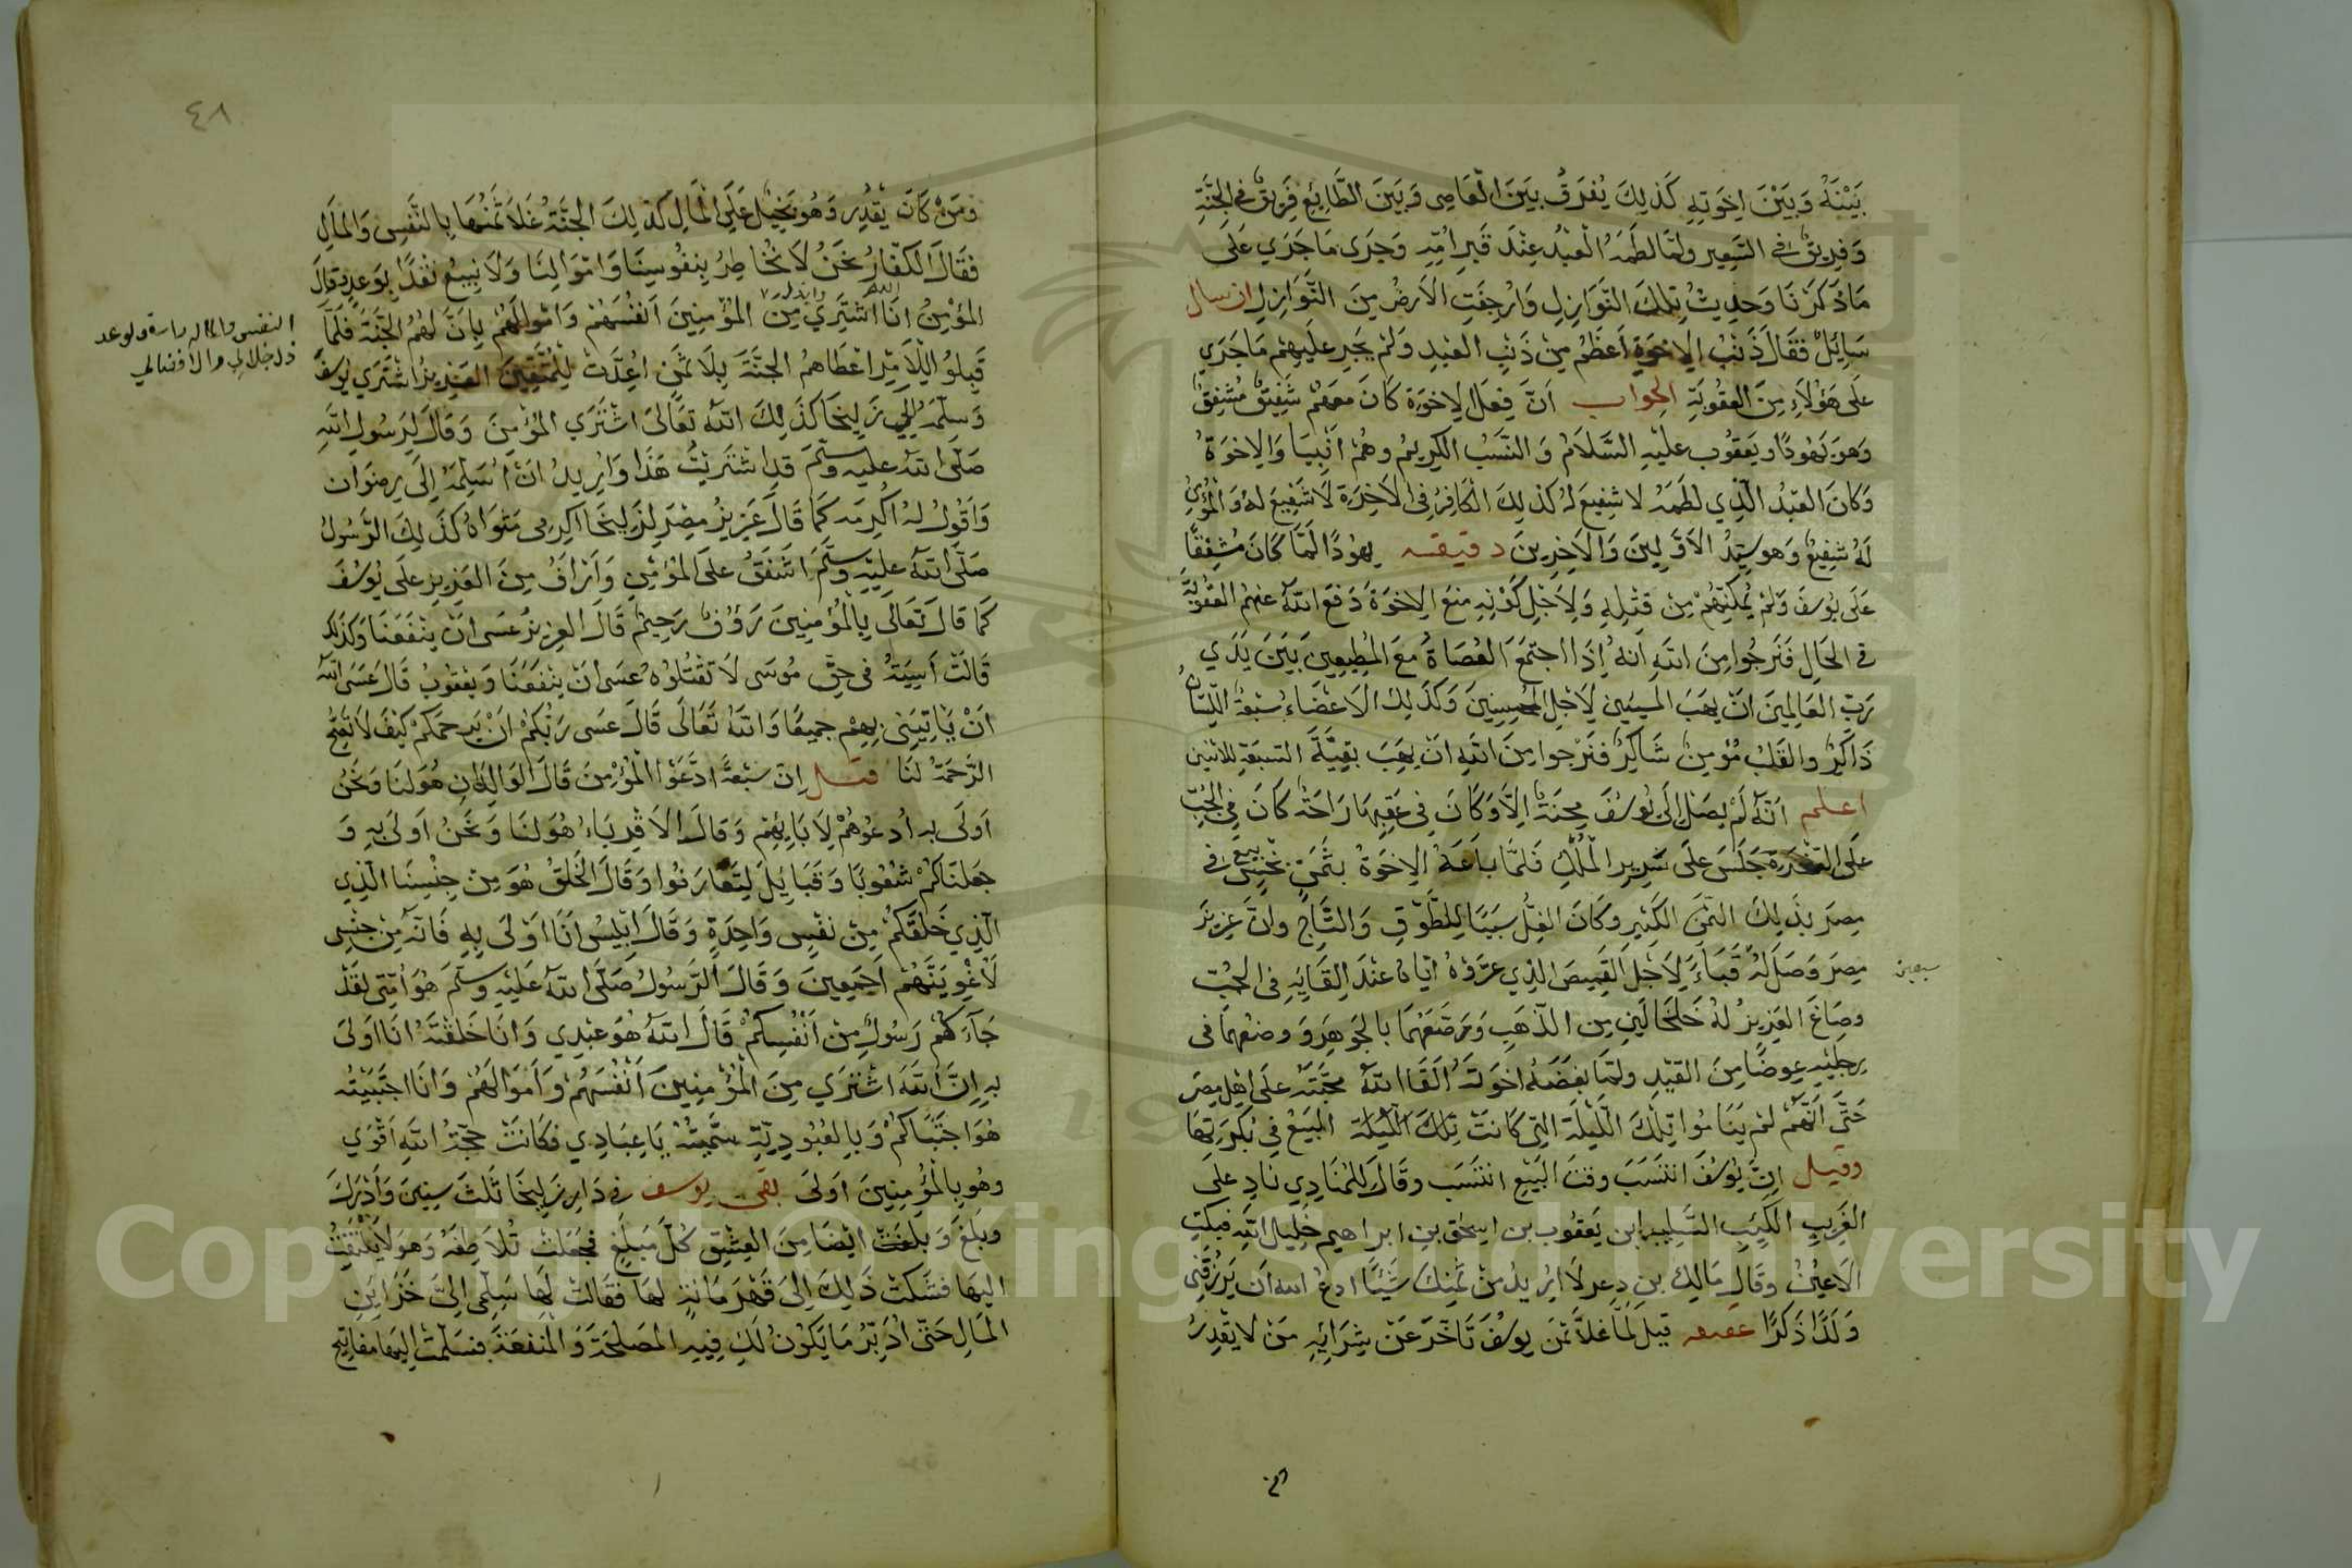 بَيْنَهُ وَبَيْنَ اِخوَتِهِ كَذلِكَ يُفرَقُ بَينَ العَاصِى وَبَينَ الطَّائِعِ فَرِيقٌ فى الجَنَّةِ
وَفريقٌ فى السَّعِيرِ ولمّا لطَمَهُ العَبْدُ عِنْدَ قَبرِ اُمِّهِ وَجَرَى مَا جَرَي عَلَى
مَا ذكَرْنَا وَحدِيثُ تِلكَ النَّوَازِلِ وَارْجِفَتِ الاَرضُ مِنَ النَّوَازِلِ ان سال
سَايِلٌ فقَالَ ذَنْبُ الاِخوَةِ اَعظَمُ مِنْ ذَنبِ العَبْدِ وَلَمْ يَجْرِ عَلَيهِمْ مَا جَرَي
عَلَى هَؤُلآءِ مِنَ العقُوبَةِ الجواب اَنَّ فِعْلَ الاِخوَةِ كَانَ مَعهُمْ شَفِيقٌ مُشفِقٌ
وَهوَ يَهُودَا ويَعقُوب عليْهِ السَّلاَمْ وَالنَّسَبُ الكَرِيمُ وهُمْ انبِيَا وَالاِخوَةُ
وَكانَ العَبْدُ الّذِي لطَمَهُ لا شفِيعَ لهُ كذلِكَ الكَافِرُ فى الاَخِرَةِ لاَ شَفِيعَ لهُ وَالمُؤمِنُ
لَهُ شفِيعٌ وَهوَ سيِّدُ الاَوَّلِينَ وَالاَخِرِينَ دقيقه يهُودَا لَمَّا كَانَ مُشفِقًا
عَلَى يُوسفَ وَلمْ يُمكِّنْهُمْ مِنْ قَتْلِهِ وَلاَجْلِ كَوْنِهِ مَنَعَ الاِخوَةَ دَفعَ اللهُ عنهُمُ العقُوبَةَ
فى الحَالِ فَنَرجُوا مِنَ اللهِ اَنهُ اِذَا اجتَمَعَ العُصَاةُ مَعَ المُطِيعِينَ بَينَ يَدَي
رَبِّ العَالمِينَ انْ يهَبَ المسِيئينَ لِاَجْلِ المُحسِنِينَ وَكذَلِكَ الاَعضَاءُ سَبْعَةٌ اللِّسَانُ
ذَاكِرٌ والقَلبُ مُؤمِنٌ شَاكِرٌ فنَرْجوا مِنَ اللهِ انْ يَهَبَ بَقِيَّةَ السبعَةِ للاثنين
اعلم اَنّهُ لَمْ يصَلْ اِلَى يُوسُفَ مِحنَةٌ اِلَّا وَكَانَ فى عَقِبِهَا رَاحَةٌ كَانَ فى الجُبِّ
عَلَى الصَّخْرَةِ جَلَسَ عَلَى سَرِيرِ المُلكِ فَلمَّا بَاعَهُ الاِخوَةُ بثَمَنٍ بَخْسٍ بيع فى
مِصرَ بذَلِكَ الثمَنَ الكَثِيرِ وكَانَ الغِلُّ سَبَبًا لِلطَّوْقِ وَالتَّاجِ واِنَّ عَزِيزَ
مِصرَ وَصَلَ لهُ قَبَاءً لِاَجلِ القَمِيصَ الذِي عرَّوْهُ ايَّاهُ عنْدَ اِلقَايِهِ فى الجُبّ
سبعين
وصَاغَ العَزِيزُ لهُ خَلخَالَينِ مِن الذّهَبِ وَرَصَّعَهُمَا بالجَوَهِرَ وَوضعهُمَا فى
رِجلَيْهِ عِوضًا مِنَ القَيْدِ ولمّا بغَضهُ اخوَتهُ اَلقَا اللهُ محَبَّتَهُ عَلَى اهلِ مِصرَ
حَتّى اَنّهُمْ لَمْ يَنَامُوا تِلكَ اللّيلَةَ التِى كَانَتْ تِلكَ اللّيلَةَ البَيعُ فى بُكرَتِهَا
وقيل اِنَّ يُوسُفَ انتَسَبَ وقتَ البَيْعِ انتَسَب وقَالَ للمُنَادِي نَادِ عَلَى
الغَرِيبِ الكَئِيبِ السَّلِيبِ ابن يَعقُوب بن اسحق بنِ ابراهِيم خَلِيلِ اللهِ فبَكتِ
الاَعيُنُ وقَالَ مَالِكُ بنِ دِعرٍ لاَ اُرِيدُ مِنْ ثَمَنِكَ شَيْئًا ادعُ الله اَن يَرزُقَنِى
وَلَدًا ذَكَرًا قيل لَمّا غلاَ ثمَنَ يوسُفَ تَاَخّرَ عَنْ شِرَائِهِ مَنْ لا يَقدِرُ
٤٨
ومَنْ كَانَ يَقْدِر وَهُوَ بَخِيل عَلَى المَالِ كَذلِكَ الجنَّةُ غَلاَ ثَمَنُهَا بِالنَّفْسِ وَالمَالِ
فَقَالَ الكفّارُ نحَنُ لاَ نُخَاطِرُ بِنفُوسِنَا وَامْوَالِنَا وَلاَ نَبِيعُ نَقدًا بِوَعدٍ وَقالَ
المؤمِنُ انَا اشتَرِي مِنَ المُؤمِنِينَ اَنفُسَهُمْ وَامْوَالَهُمْ بِاَنَّ لَهُمُ الجَنَّةَ فلَمَّا
قَبِلُوُا الاَمْرَ اعْطَاهُمُ الجنَّةَ بِلاَ ثَمَنٍ اُعِدَّتْ لِلْمُتَّقِينَ العَزِيزُ اشْتَرَي يُوسُفَ
وَسلّمَهُ اِلَي زَلِيخَا كَذَلِكَ اللهُ تعَالَى اشْتَرَي المُؤمِنَ وَقَالَ لِرَسُولِ اللهِ
صَلَّى اللهُ عليه وسلّمَ قَدِ اشتَرَيْتُ هَذَا وَاُرِيدُ انْ اُسَلِّمَهُ اِلَى رِضوَان
وَاَقُولُ لهُ اكرِمه كَمَا قَالَ عَزِيزُ مِصْرَ لِزَلِيخَا اكرِمِى مَثوَاهُ كَذَلِكَ الرَّسُولُ
صَلّى اللهُ عَلَيْهِ وَسَلَّمَ اَشفَقُ عَلَى المُؤمِنِ وَاَرْاَفُ مِنَ العَزِيزِ عَلَى يُوسُفَ
كَمَا قَالَ تَعَالَى بِالمُؤْمِنِينَ رَؤُفٌ رَحِيمٌ قَالَ العزِيزُ عَسَى انْ يَنْفَعَنَا وَكذلِكَ
قَالَتْ آسِيَةُ فى حَقِّ مُوسَى لاَ تَقْتُلُوُه عَسَى اَنْ يَنْفَعَنَا وَيَعْقوُبُ قَالَ عَسَى اللهُ
اَنْ يَّاتِيَنِى بِهِمْ جمِيعًا وَاللهُ تَعَالَى قَالَ عَسَى رَبُّكُمْ اَنْ يَرحَمَكُمْ كَيْفَ لاَ تقعُ
الرَّحمَةُ لَنَا فصل اِنَّ سَبْعَةً ادَّعَوْا المُؤْمِنَ قَالَ الوَالِدَانِ هُوَ لنَا وَنَحْنُ
اَولَى به اُدعُوُهُمْ لِاَبَايِهِمْ وَقَالَ الاَقْرِبَاءُ هُوَ لَنَا وَنَحنُ اَولَى بِهِ وَ
جعَلنَاكُمْ شعُوبًا وَقَبَايِلَ لِتَعَارَفُوا وَقَالَ الخَلقُ هُوَ مِنْ جِنْسِنَا الّذِي
الّذِي خَلَقَكُمْ مِنْ نفْسٍ وَاحِدَةٍ وَقَالَ اِبْلِيسُ اَنَا اَوْلَى بِهِ فَاِنّهُ مِنْ جنْسِى
لَاُغْوِيَنَّهُمْ اَجْمَعِينَ وَقَالَ الرَّسُولُ صَلّى اللهُ عَلَيْهِ وَسلّمَ هُوَ اُمّتِى لقَدْ
جَاۤءَكُمْ رَسُولٌ مِنْ اَنْفُسِكُمْ قَالَ اللهُ هُوَ عَبْدِي وَانَا خَلَقتَهُ انَا اَولَى
بهِ اِنَّ اللهَ اشْتَرَي مِنَ المُؤْمِنِينَ اَنْفُسَهُمْ وَاَموَالَهُمْ وَانَا اجتَبَيْتُه
هُوَ اجتَبَاكُمْ وَبِالعُبُودِيّةِ سَمَّيْتُهُ يَا عِبَادِي فكَانَتْ حُجَّةُ اللهِ اَقْوَي
وهُو بِالمُؤْمِنِينَ اَولَى بقى يوسف فى دَارِ زَلِيخَا ثَلثَ سِنِينَ وَاَدْرَكَ
وبَلَغَ وَبَلغَتْ ايْضًا مِنَ العِشقِ كُلَّ مَبلَغٍ فجَعَلتْ تُلاَطِفَهُ وَهوَ لاَ يَلْتَفِتُ
اليهَا فشَكَتْ ذَلِكَ اِلَى قَهْرَمَانةٍ لهَا فقَالَتْ لَهَا سَلِّمِى اِلَيَّ خَزَايِنِ
المَالِ حَتّى ادَبِّرُ مَا يَكُوُنُ لَكِ فِيهِ المَصلَحَةَ وَالمَنفعَةَ فسَلّمَتْ اِليهَا مفاتِيح